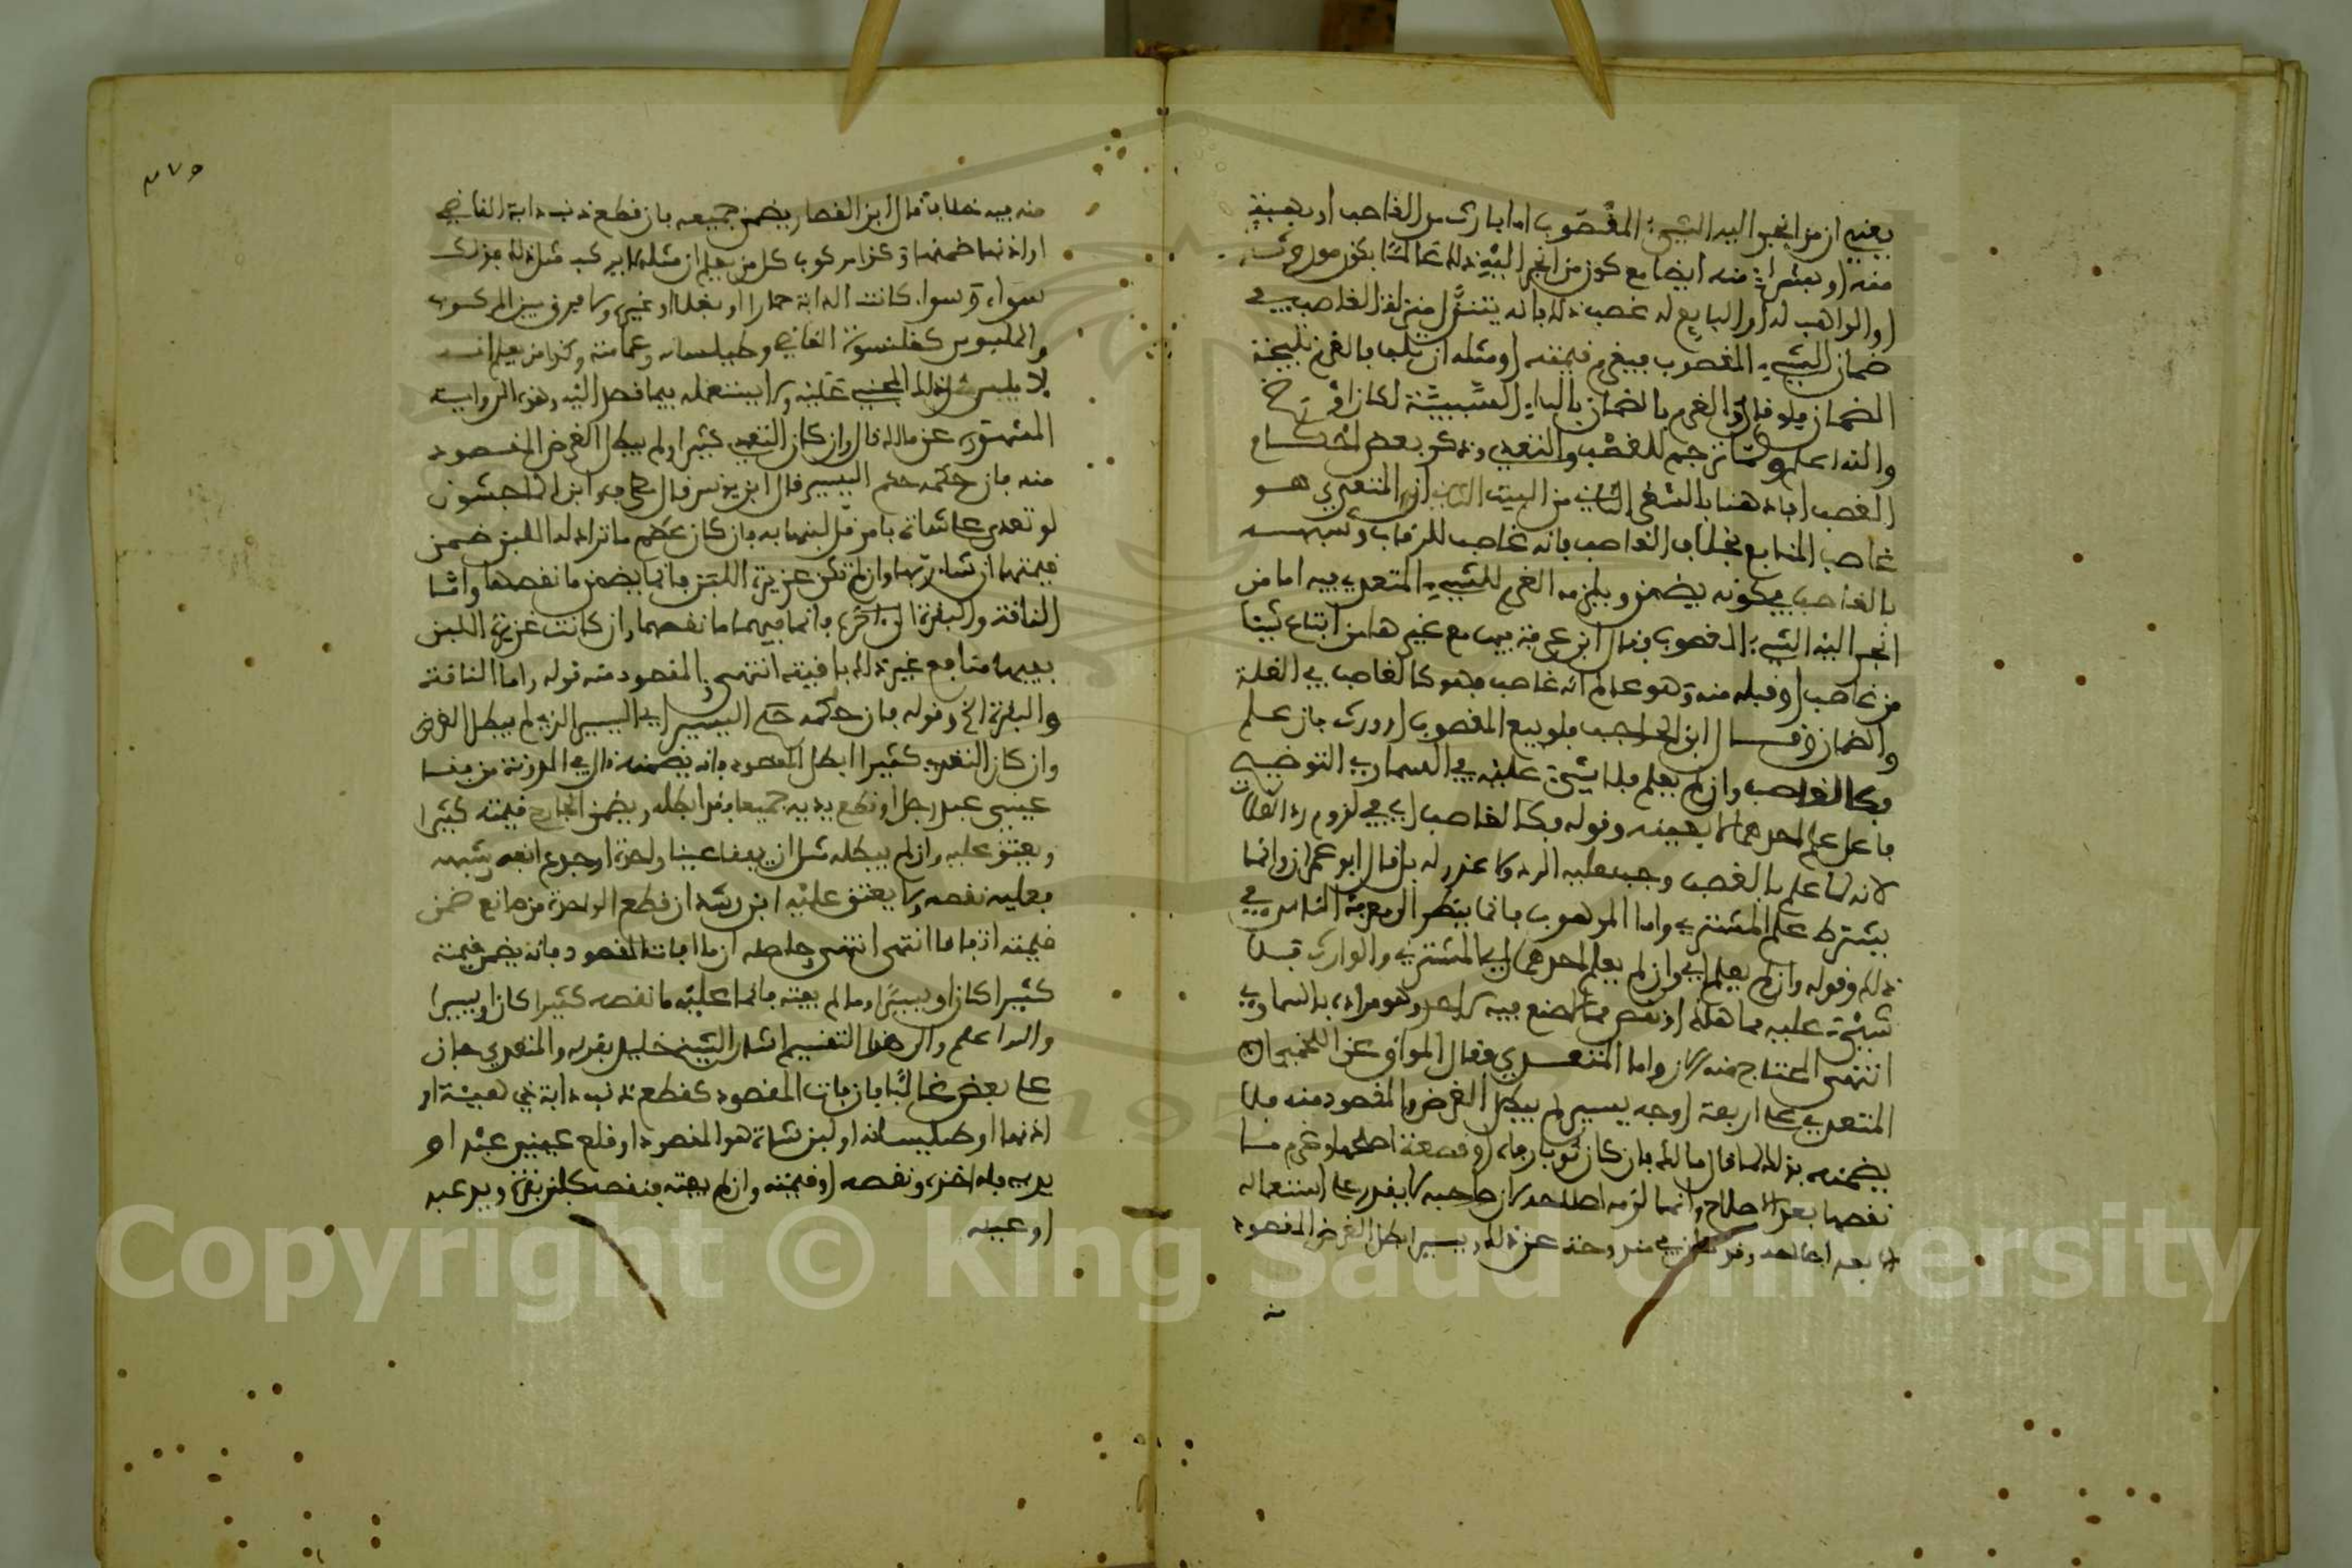 يعني ان من انجر اليه الشيء المغصوب اما بارث من الغاصب او بهبة
منه او بشراء منه ايضا مع كون من انجر اليه ذلك عالما بكون موروثه
او الواهب له او البايع له غصب ذلك فانه يتنزل منزلة الغاصب في
ضمان الشيء المغصوب فيغرم قيمته او مثله ان تلف بالغرم نتيجة
الضمان فلو قال والغرم بالضمان بالباء السببية لكان
والله اعلم ولما ترجم للغصب والتعدي وذكر بعض احكام
الغصب افاد هنا بالشطر الثاني من البيت ان المتعدي هو
غاصب المنافع بخلاف الغاصب فانه غاصب للرقاب وشبهه
بالغاصب في كونه يضمن ويلزمه الغرم للشيء المتعدى فيه اما من
انجر اليه الشيء المغصوب فقال ابن عرفة فيها مع غيرها من ابتاع شيئا
من غاصب او قبله منه وهو عالم انه غاصب فهو كالغاصب في الغلة
والضمان وقال ابن الحاجب فلو بيع المغصوب او ورث فان علم
فكالغاصب وان لم يعلم فلا شيء عليه في السماوي التوضيح
فاعل علم احدهما لا بعينه وقوله فكالغاصب اي في لزوم رد الغلات
لانه لما علم بالغصب وجب عليه الرد ولا عذر له بل قال ابو عمران وانما
يشترط علم المشتري واما الموهوب فانما ينظر الى معرفة الناس في
ذلك وقوله وان لم يعلم اي وان لم يعلم احدهما اي المشتري والوارث فلا
شيء عليه مما هلك او نقص مما لا صنع فيه لاحد وهو مراده بالسماوي
انتهى المحتاج منه الان واما المتعدي فقال المواق عن اللخمي ان
المتعدي على اربعة اوجه يسير لم يبطل الغرض والمقصود منه فلا
يضمنه بذلك فقال مالك فان كان ثوبا رفاه او قصعة اصلحها وغرم ما
نقصها بعد الاصلاح وانما لزمه اصلاحه لان صاحبه لا يقدر على استعماله
الا بعد اصلاحه وقد كان في مندوحة عن ذلك ويسير ابطل الغرض المقصود
منه
٣٧٥
منه ففيه خلاف قال ابن القصار يضمن جميعه بان قطع ذنب دابة القاضي
او اذنها ضمنها وكذا مركوب كل من يعلم ان مثله لا يركب مثل ذلك فذلك
سواء وسواء كانت الدابة حمارا او بغلا او غيره ولا فرق بين المركوب
والملبوس كقلنسوة القاضي وطيلسانه وعمامته وكذا من يعلم انه
لا يلبس مثل ذلك المجني عليه ولا يستعمله فيما قصد اليه وهذه الرواية
المشهورة عن مالك قال وان كان التعدي كثيرا ولم يبطل الغرض المقصود
منه فان حكمه حكم اليسير قال ابن يونس قال مطرف وابن الماجشون
لو تعدى على شاة بامر قل لبنها به فان كان عظم ما تراد له اللبن ضمن
قيمتها ان شاء ربها وان لم تكن غزيرة اللبن فانما يضمن ما نقصها واما
الناقة والبقرة فانما فيهما ما نقصهما وان كانت غزيرة اللبن
ففيهما منافع غير ذلك باقية انتهى المقصود منه قوله واما الناقة
والبقرة الخ وقوله فان حكمه حكم اليسير اي اليسير الذي لم يبطل الغرض
وان كان التعدي كثيرا ابطل المقصود فانه يضمنه قال في المدونة من فقأ
عيني عبد رجل او قطع يديه جميعا فقد ابطله ويضمن الجارح قيمته كثيرا
ويعتق عليه وان لم يبطله مثل ان يفقأ عينا واحدة او جدع انفه وشبهه
فعليه نقصه ولا يعتق عليه ابن رشد ان قطع الواحدة من صانع ضمن
قيمته اتفاقا انتهى انتهى وحاصله ان ما افات المقصود فانه يضمن قيمته
كثيرا كان او يسيرا وما لم يفته فانما عليه ما نقصه كثيرا كان او يسيرا
والله اعلم والى هذا التقسيم اشار الشيخ خليل بقوله والمتعدي جان
على بعض غالبا فان افات المقصود كقطع ذنب دابة ذي هيئة او
اذنها او طيلسانه او لبن شاة هو المقصود او قلع عيني عبد او
يديه فله اخذه ونقصه او قيمته وان لم يفته فنقصه كلبن بقرة ويد عبد
او عينه
Copyright © King Saud University